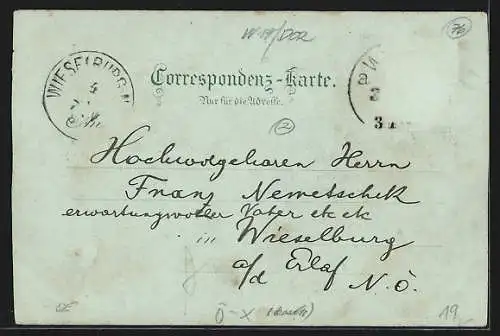 76
WIESELBURG
Correspondenz-Karte.
Nur für die Adresse.
2
Hochwolgeboren Herrn
Franz Nemetschek
erwartungsvoller Vater etc etc
in Wieselburg
a/d Erlaf N.Ö.
19